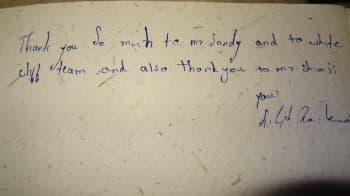 Thank you so much to mr. Sandy and to white
clyff team and also thank you to mr. Shivaji
your's